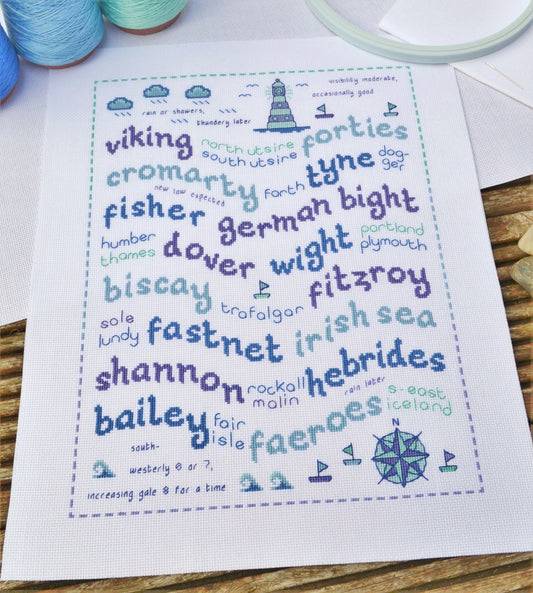 visibility moderate,
occasionally good
rain or showers,
thundery later
viking
north utsire
south utsire
forties
cromarty
forth
tyne
dog-
ger
new low expected
fisher
german bight
humber
thames
dover
wight
portland
plymouth
biscay
trafalgar
fitzroy
sole
lundy
fastnet
irish sea
shannon
rockall
malin
hebrides
rain later
bailey
fair
isle
faeroes
s-east
iceland
south-
westerly 6 or 7,
increasing gale 8 for a time
N